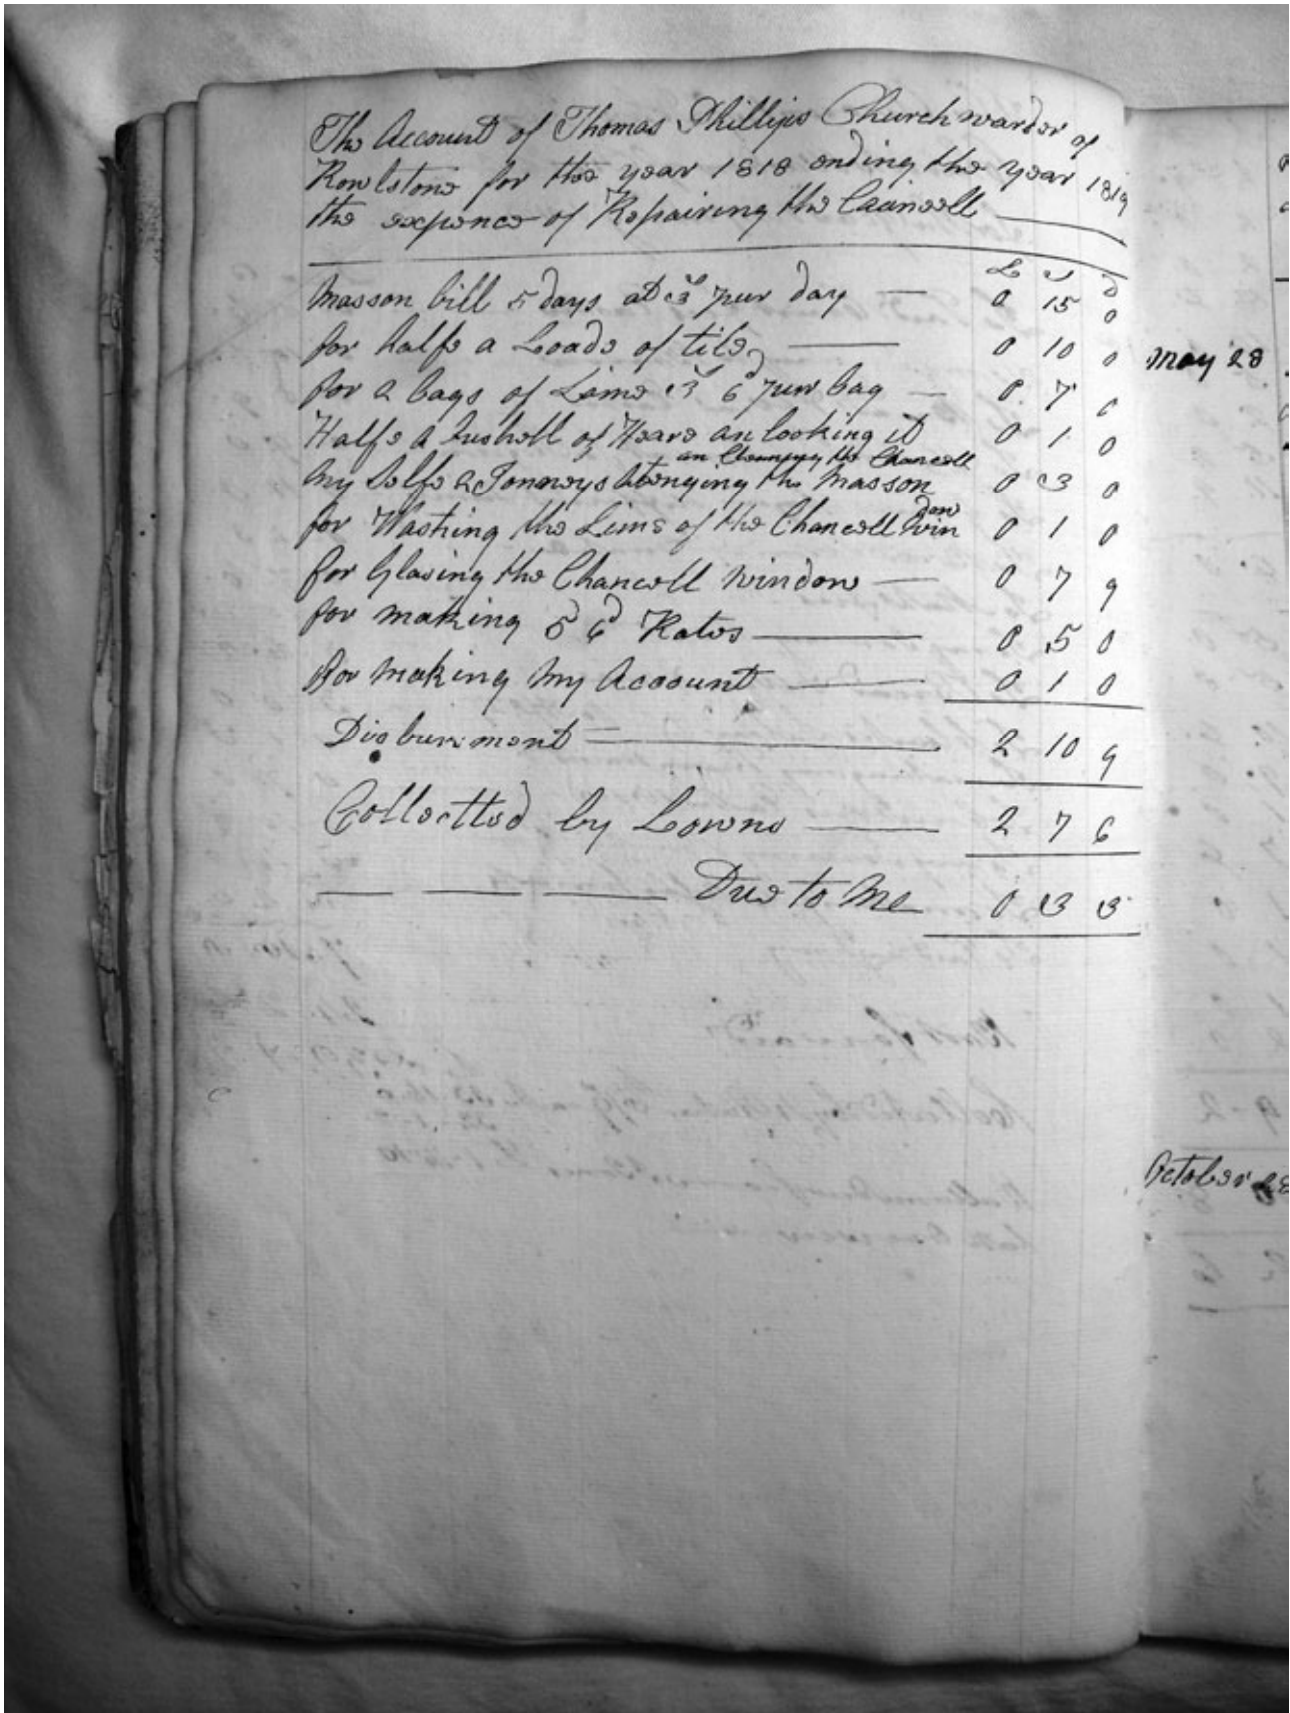 The Account of Thomas Phillips Church warden of
Rowlstone for the year 1818 ending the year 1819
the expence of Repairing the Cainsell
£ s d
Masson bill 5 days at 3s pur day 0 15 0
for halfe a Loade of tile 0 10 0
for 2 bags of Lime 3s 6d pur bag 0 7 0
Halfe a bushell of Heare an looking it 0 1 0
an Cleaning the Chancell
my Selfe 2 Jorneys the Masson 0 3 0
for Washing the Lime of the Chancell win dow 0 1 0
for Glasing the Chancell window 0 7 9
for making 5 6d Rates 0 5 0
for making my Account 0 1 0
Disbursment 2 10 9
Collectted by Lowns 2 7 6
Due to Me 0 3 3
May 28
October 28